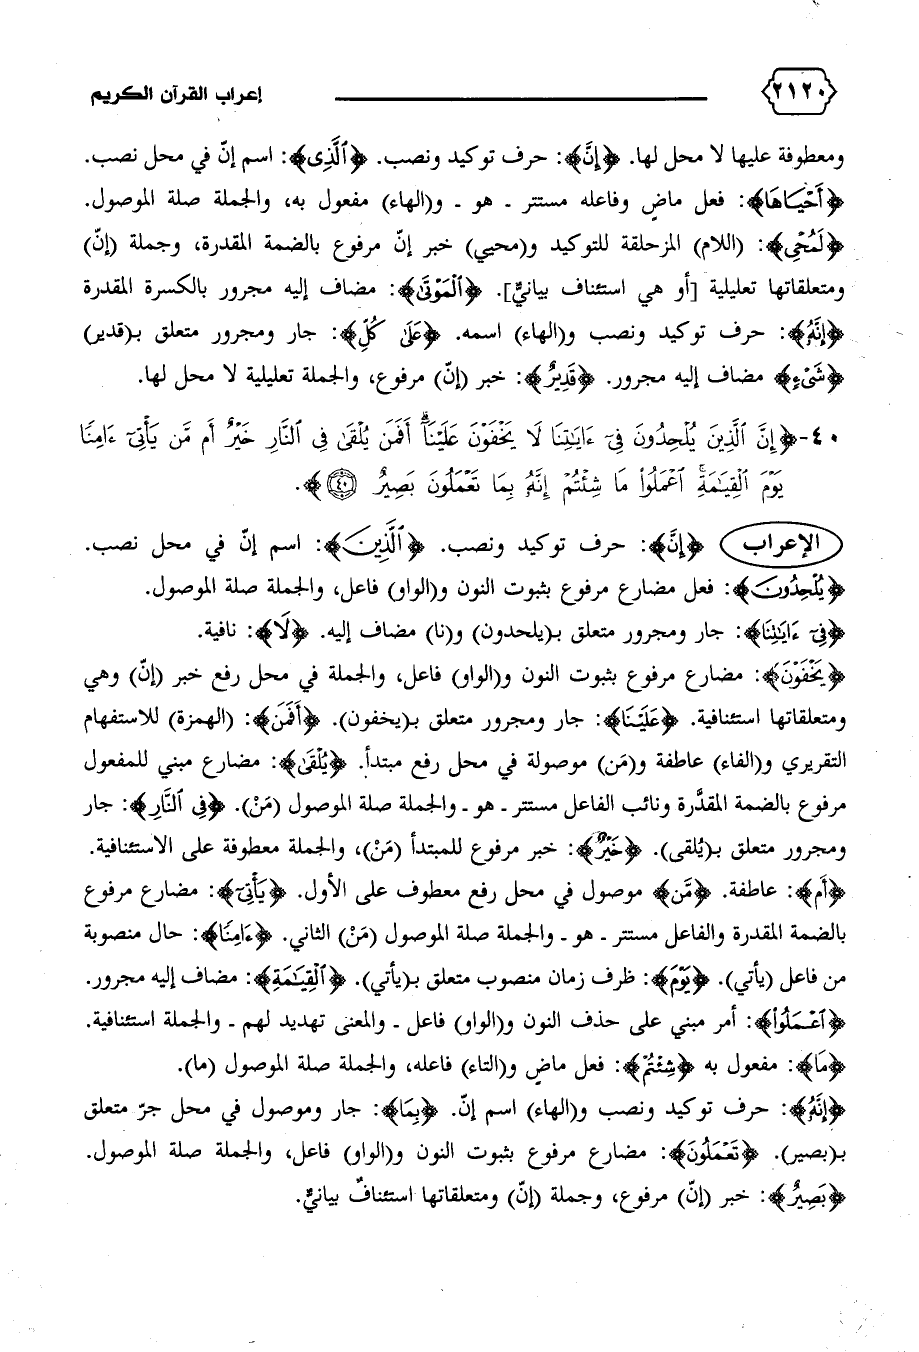 ٢١٢٠ إعراب القرآن الكريم
ومعطوفة عليها لا محل لها. ﴿إِنَّ﴾: حرف توكيد ونصب. ﴿ٱلَّذِىٓ﴾: اسم إنّ في محل نصب.
﴿أَحْيَاهَا﴾: فعل ماضٍ وفاعله مستتر ـ هو ـ و(الهاء) مفعول به، والجملة صلة الموصول.
﴿لَمُحْىِ﴾: (اللام) المزحلقة للتوكيد و(محيي) خبر إنّ مرفوع بالضمة المقدرة، وجملة (إنّ)
ومتعلقاتها تعليلية [أو هي استئناف بيانيٌّ]. ﴿ٱلْمَوْتَىٰٓ﴾: مضاف إليه مجرور بالكسرة المقدرة
﴿إِنَّهُۥ﴾: حرف توكيد ونصب و(الهاء) اسمه. ﴿عَلَىٰ كُلِّ﴾: جار ومجرور متعلق بـ(قدير)
﴿شَىْءٍ﴾ مضاف إليه مجرور. ﴿قَدِيرٌ﴾: خبر (إنّ) مرفوع، والجملة تعليلية لا محل لها.
٤٠- ﴿إِنَّ ٱلَّذِينَ يُلْحِدُونَ فِىٓ ءَايَٰتِنَا لَا يَخْفَوْنَ عَلَيْنَآ ۗ أَفَمَن يُلْقَىٰ فِى ٱلنَّارِ خَيْرٌ أَم مَّن يَأْتِىٓ ءَامِنًا
يَوْمَ ٱلْقِيَٰمَةِ ۚ ٱعْمَلُوا۟ مَا شِئْتُمْ إِنَّهُۥ بِمَا تَعْمَلُونَ بَصِيرٌ ٤٠﴾.
الإعراب ﴿إِنَّ﴾: حرف توكيد ونصب. ﴿ٱلَّذِينَ﴾: اسم إنّ في محل نصب.
﴿يُلْحِدُونَ﴾: فعل مضارع مرفوع بثبوت النون و(الواو) فاعل، والجملة صلة الموصول.
﴿فِىٓ ءَايَٰتِنَا﴾: جار ومجرور متعلق بـ(يلحدون) و(نا) مضاف إليه. ﴿لَا﴾: نافية.
﴿يَخْفَوْنَ﴾: مضارع مرفوع بثبوت النون و(الواو) فاعل، والجملة في محل رفع خبر (إنّ) وهي
ومتعلقاتها استئنافية. ﴿عَلَيْنَا﴾: جار ومجرور متعلق بـ(يخفون). ﴿أَفَمَن﴾: (الهمزة) للاستفهام
التقريري و(الفاء) عاطفة و(مَن) موصولة في محل رفع مبتدأ. ﴿يُلْقَىٰ﴾: مضارع مبني للمفعول
مرفوع بالضمة المقدَّرة ونائب الفاعل مستتر ـ هو ـ والجملة صلة الموصول (مَنْ). ﴿فِى ٱلنَّارِ﴾: جار
ومجرور متعلق بـ(يُلقى). ﴿خَيْرٌ﴾: خبر مرفوع للمبتدأ (مَنْ)، والجملة معطوفة على الاستئنافية.
﴿أَم﴾: عاطفة. ﴿مَّن﴾ موصول في محل رفع معطوف على الأول. ﴿يَأْتِىٓ﴾: مضارع مرفوع
بالضمة المقدرة والفاعل مستتر ـ هو ـ والجملة صلة الموصول (مَنْ) الثاني. ﴿ءَامِنًا﴾: حال منصوبة
من فاعل (يأتي). ﴿يَوْمَ﴾: ظرف زمان منصوب متعلق بـ(يأتي). ﴿ٱلْقِيَٰمَةِ﴾: مضاف إليه مجرور.
﴿ٱعْمَلُوا۟﴾: أمر مبني على حذف النون و(الواو) فاعل ـ والمعنى تهديد لهم ـ والجملة استئنافية.
﴿مَا﴾: مفعول به ﴿شِئْتُمْ﴾: فعل ماضٍ و(التاء) فاعله، والجملة صلة الموصول (ما).
﴿إِنَّهُۥ﴾: حرف توكيد ونصب و(الهاء) اسم إنّ. ﴿بِمَا﴾: جار وموصول في محل جرّ متعلق
بـ(بصير). ﴿تَعْمَلُونَ﴾: مضارع مرفوع بثبوت النون و(الواو) فاعل، والجملة صلة الموصول.
﴿بَصِيرٌ﴾: خبر (إنّ) مرفوع، وجملة (إنّ) ومتعلقاتها استئنافٌ بيانيٌّ.